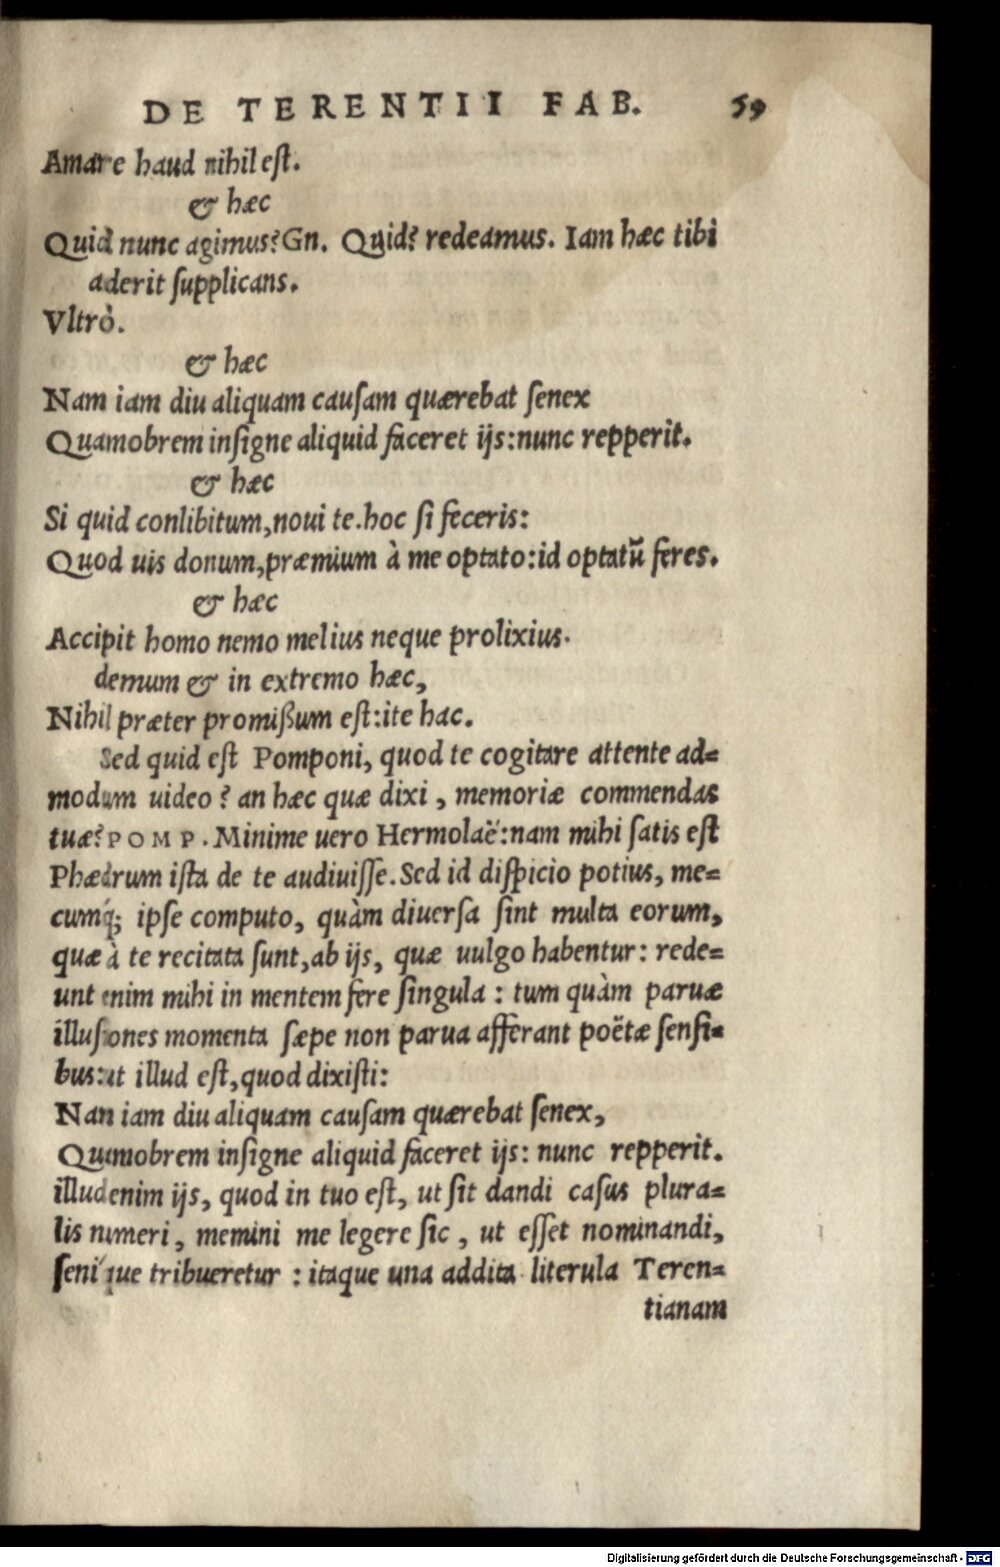 DE TERENTII FAB. 59
Amare haud nihil est.
& hæc
Quid nunc agimus? Gn. Quid? redeamus. Iam hæc tibi
aderit supplicans.
Vltrò.
& hæc
Nam iam diu aliquam causam quærebat senex
Quamobrem insigne aliquid faceret ijs: nunc repperit.
& hæc
Si quid conlibitum, noui te. hoc si feceris:
Quod uis donum, præmium à me optato: id optatū feres.
& hæc
Accipit homo nemo melius neque prolixius.
demum & in extremo hæc,
Nihil præter promißum est: ite hac.
Sed quid est Pomponi, quod te cogitare attente ad=
modum uideo? an hæc quæ dixi, memoriæ commendas
tuæ? POMP. Minime uero Hermolaë: nam mihi satis est
Phædrum ista de te audiuisse. Sed id dispicio potius, me=
cumq́; ipse computo, quàm diuersa sint multa eorum,
quæ à te recitata sunt, ab ijs, quæ uulgo habentur: rede=
unt enim mihi in mentem fere singula: tum quàm paruæ
illusiones momenta sæpe non parua afferant poëtæ sensi=
bus: ut illud est, quod dixisti:
Nan iam diu aliquam causam quærebat senex,
Quamobrem insigne aliquid faceret ijs: nunc repperit.
illud enim ijs, quod in tuo est, ut sit dandi casus plura=
lis numeri, memini me legere sic, ut esset nominandi,
senique tribueretur: itaque una addita literula Teren=
tianam
Digitalisierung gefördert durch die Deutsche Forschungsgemeinschaft - DFG